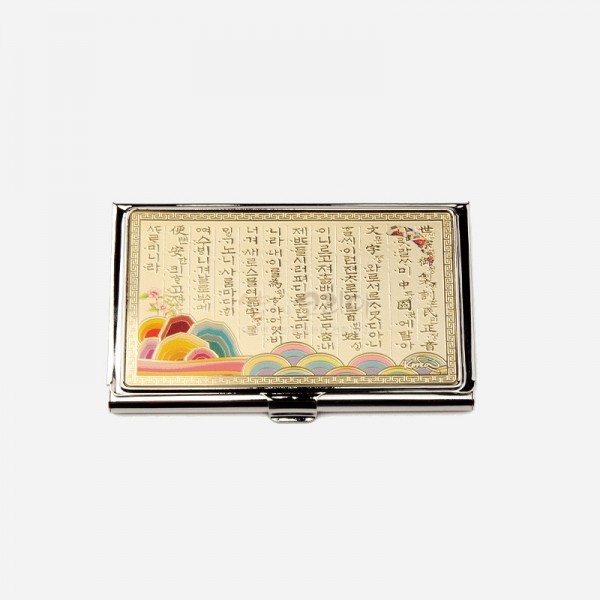 世宗御製訓民正音
나랏말ᄊᆞ미 中國에달아
文字와로서르ᄉᆞᄆᆞᆺ디아니
ᄒᆞᆯᄊᆡ이런젼ᄎᆞ로어린百姓
이니르고져홇배이셔도ᄆᆞᄎᆞᆷ내
제ᄠᅳ들시러펴디몯ᄒᆞᇙ노미하
니라내이ᄅᆞᆯ爲ᄒᆞ야어엿비
너겨새로스믈여듧字ᄅᆞᆯ
ᄆᆡᇰᄀᆞ노니사ᄅᆞᆷ마다ᄒᆡ
여수ᄫᅵ니겨날로ᄡᅮ메
便安킈ᄒᆞ고져
ᄯᆞᄅᆞ미니라
Korea